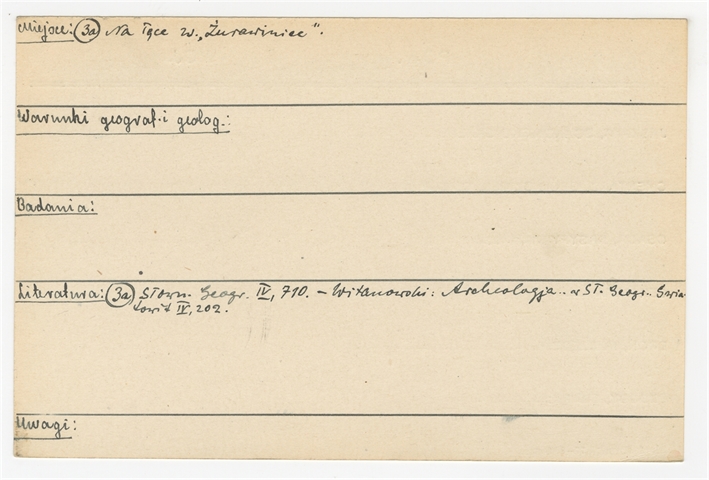 Miejsce: 3a Na łące w. „Żurawiniec”.
Warunki geograf. i geolog.:
Badania:
Literatura: 3a Słown. Geogr. IV, 710. – Witanowski: Archeologja.. w Sł. Geogr. Świa-
towit IV, 202.
Uwagi: